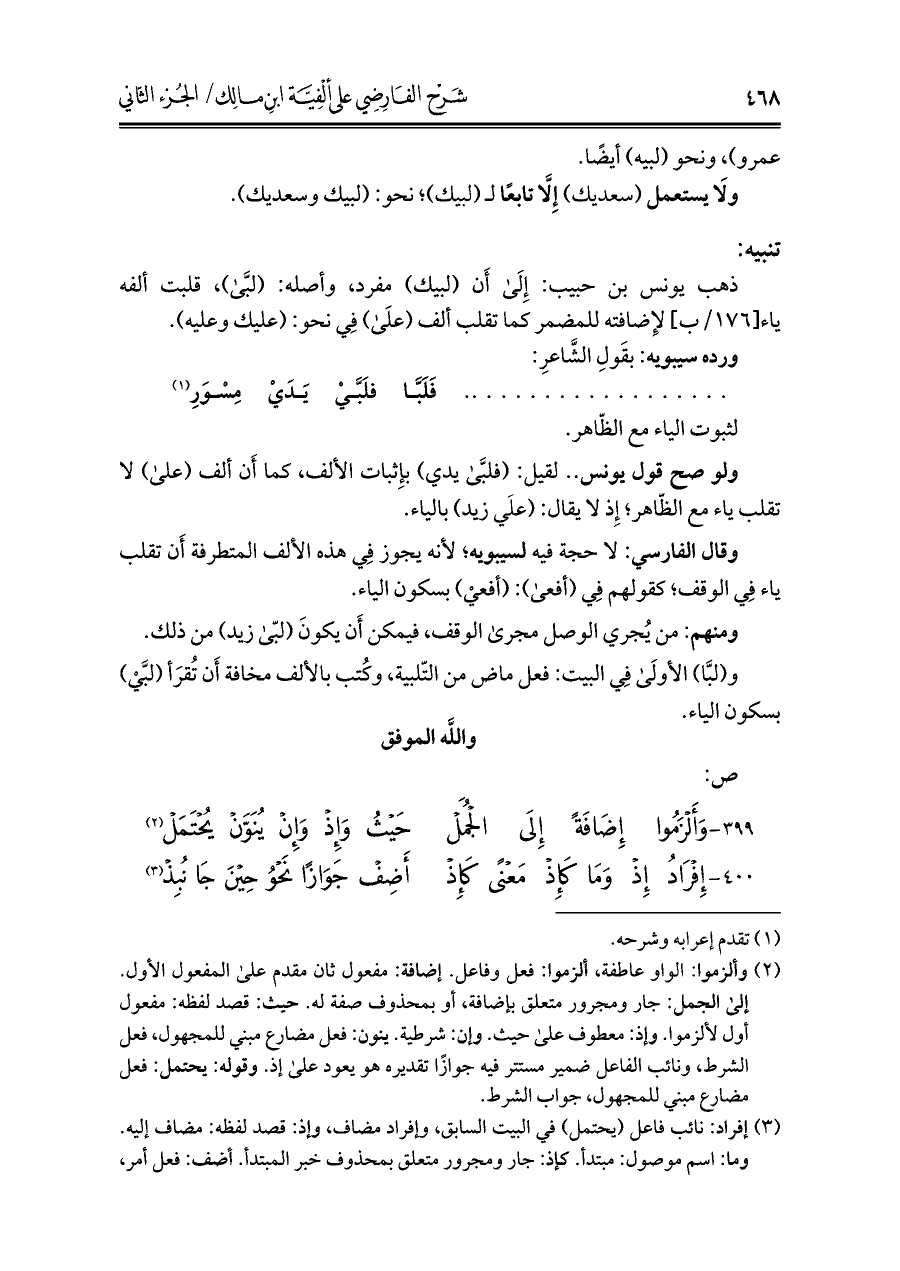 ٤٦٨ شَرْح الفَارِضِي على ألْفِيَّة ابنِ مالِك/ الجُزء الثاني
عمرو)، ونحو (لبيه) أيضًا.
ولَا يستعمل (سعديك) إِلَّا تابعًا لـ (لبيك)؛ نحو: (لبيك وسعديك).
تنبيه:
ذهب يونس بن حبيب: إِلَىٰ أَن (لبيك) مفرد، وأصله: (لبَّىٰ)، قلبت ألفه
ياء[١٧٦/ ب] لإِضافته للمضمر كما تقلب ألف (علَىٰ) فِي نحو: (عليك وعليه).
ورده سيبويه: بقَولِ الشَّاعرِ:
. . . . . . . . . . . . . . . . . .. فَلَبَّا فلَبَّيْ يَدَيْ مِسْوَرِ(١)
لثبوت الياء مع الظّاهر.
ولو صح قول يونس.. لقيل: (فلبَّىٰ يدي) بإِثبات الألف، كما أَن ألف (علىٰ) لا
تقلب ياء مع الظّاهر؛ إِذ لا يقال: (علَي زيد) بالياء.
وقال الفارسي: لا حجة فيه لسيبويه؛ لأنه يجوز فِي هذه الألف المتطرفة أَن تقلب
ياء فِي الوقف؛ كقولهم فِي (أفعىٰ): (أفعيْ) بسكون الياء.
ومنهم: من يُجري الوصل مجرىٰ الوقف، فيمكن أَن يكونَ (لبّىٰ زيد) من ذلك.
و(لبَّا) الأولَىٰ فِي البيت: فعل ماض من التّلبية، وكُتب بالألف مخافة أَن تُقرَأ (لبَّيْ)
بسكون الياء.
واللَّه الموفق
ص:
٣٩٩-وَأَلْزَمُوا إِضَافَةً إِلَى الْجُمَلْ حَيْثُ وَإِذْ وَإِنْ يُنَوَّنْ يُحْتَمَلْ(٢)
٤٠٠-إِفْرَادُ إِذْ وَمَا كَإِذْ مَعْنًى كَإِذْ أَضِفْ جَوَازًا نَحْوُ حِيْنَ جَا نُبِذْ(٣)
(١) تقدم إعرابه وشرحه.
(٢) وألزموا: الواو عاطفة، ألزموا: فعل وفاعل. إضافة: مفعول ثان مقدم علىٰ المفعول الأول.
إلىٰ الجمل: جار ومجرور متعلق بإضافة، أو بمحذوف صفة له. حيث: قصد لفظه: مفعول
أول لألزموا. وإذ: معطوف علىٰ حيث. وإن: شرطية. ينون: فعل مضارع مبني للمجهول، فعل
الشرط، ونائب الفاعل ضمير مستتر فيه جوازًا تقديره هو يعود علىٰ إذ. وقوله: يحتمل: فعل
مضارع مبني للمجهول، جواب الشرط.
(٣) إفراد: نائب فاعل (يحتمل) في البيت السابق، وإفراد مضاف، وإذ: قصد لفظه: مضاف إليه.
وما: اسم موصول: مبتدأ. كإذ: جار ومجرور متعلق بمحذوف خبر المبتدأ. أضف: فعل أمر،